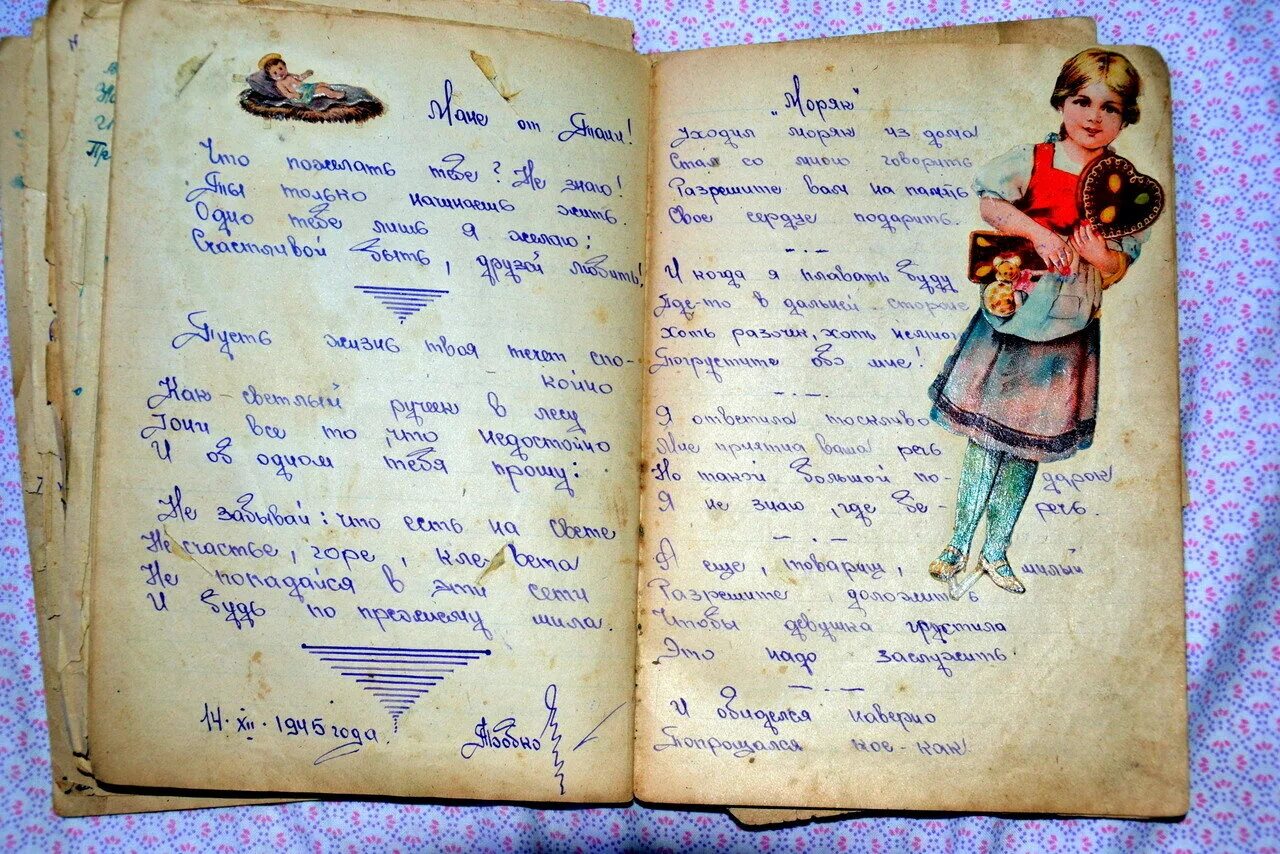 Мане от Тани!
Что пожелать тебе? Не знаю!
Ты только начинаешь жить.
Одно тебе лишь я желаю:
Счастливой быть, друзей любить!
Пусть жизнь твоя течет спо-
койно
Как светлый ручеек в лесу
Гони все то, что недостойно
И об одном тебя прошу:
Не забывай: что есть на свете
Несчастье, горе, клевета
Не попадайся в эти сети
И будь по прежнему мила.
14·XII·1945 года.
"Моряк"
Уходил моряк из дома
Стал со мною говорить
Разрешите вам на память
Свое сердце подарить.
И когда я плавать буду
Где-то в дальней стороне
Хоть разочек, хоть немног
Погрустите обо мне!
Я ответила тоскливо
Мне приятна ваша речь
Но такой большой по-дарок
Я не знаю, где бе-речь.
А еще, товарищ, милый
Разрешите, доложить
Чтобы девушка грустила
Это надо заслужить
И обиделся наверно
Попрощался кое-как